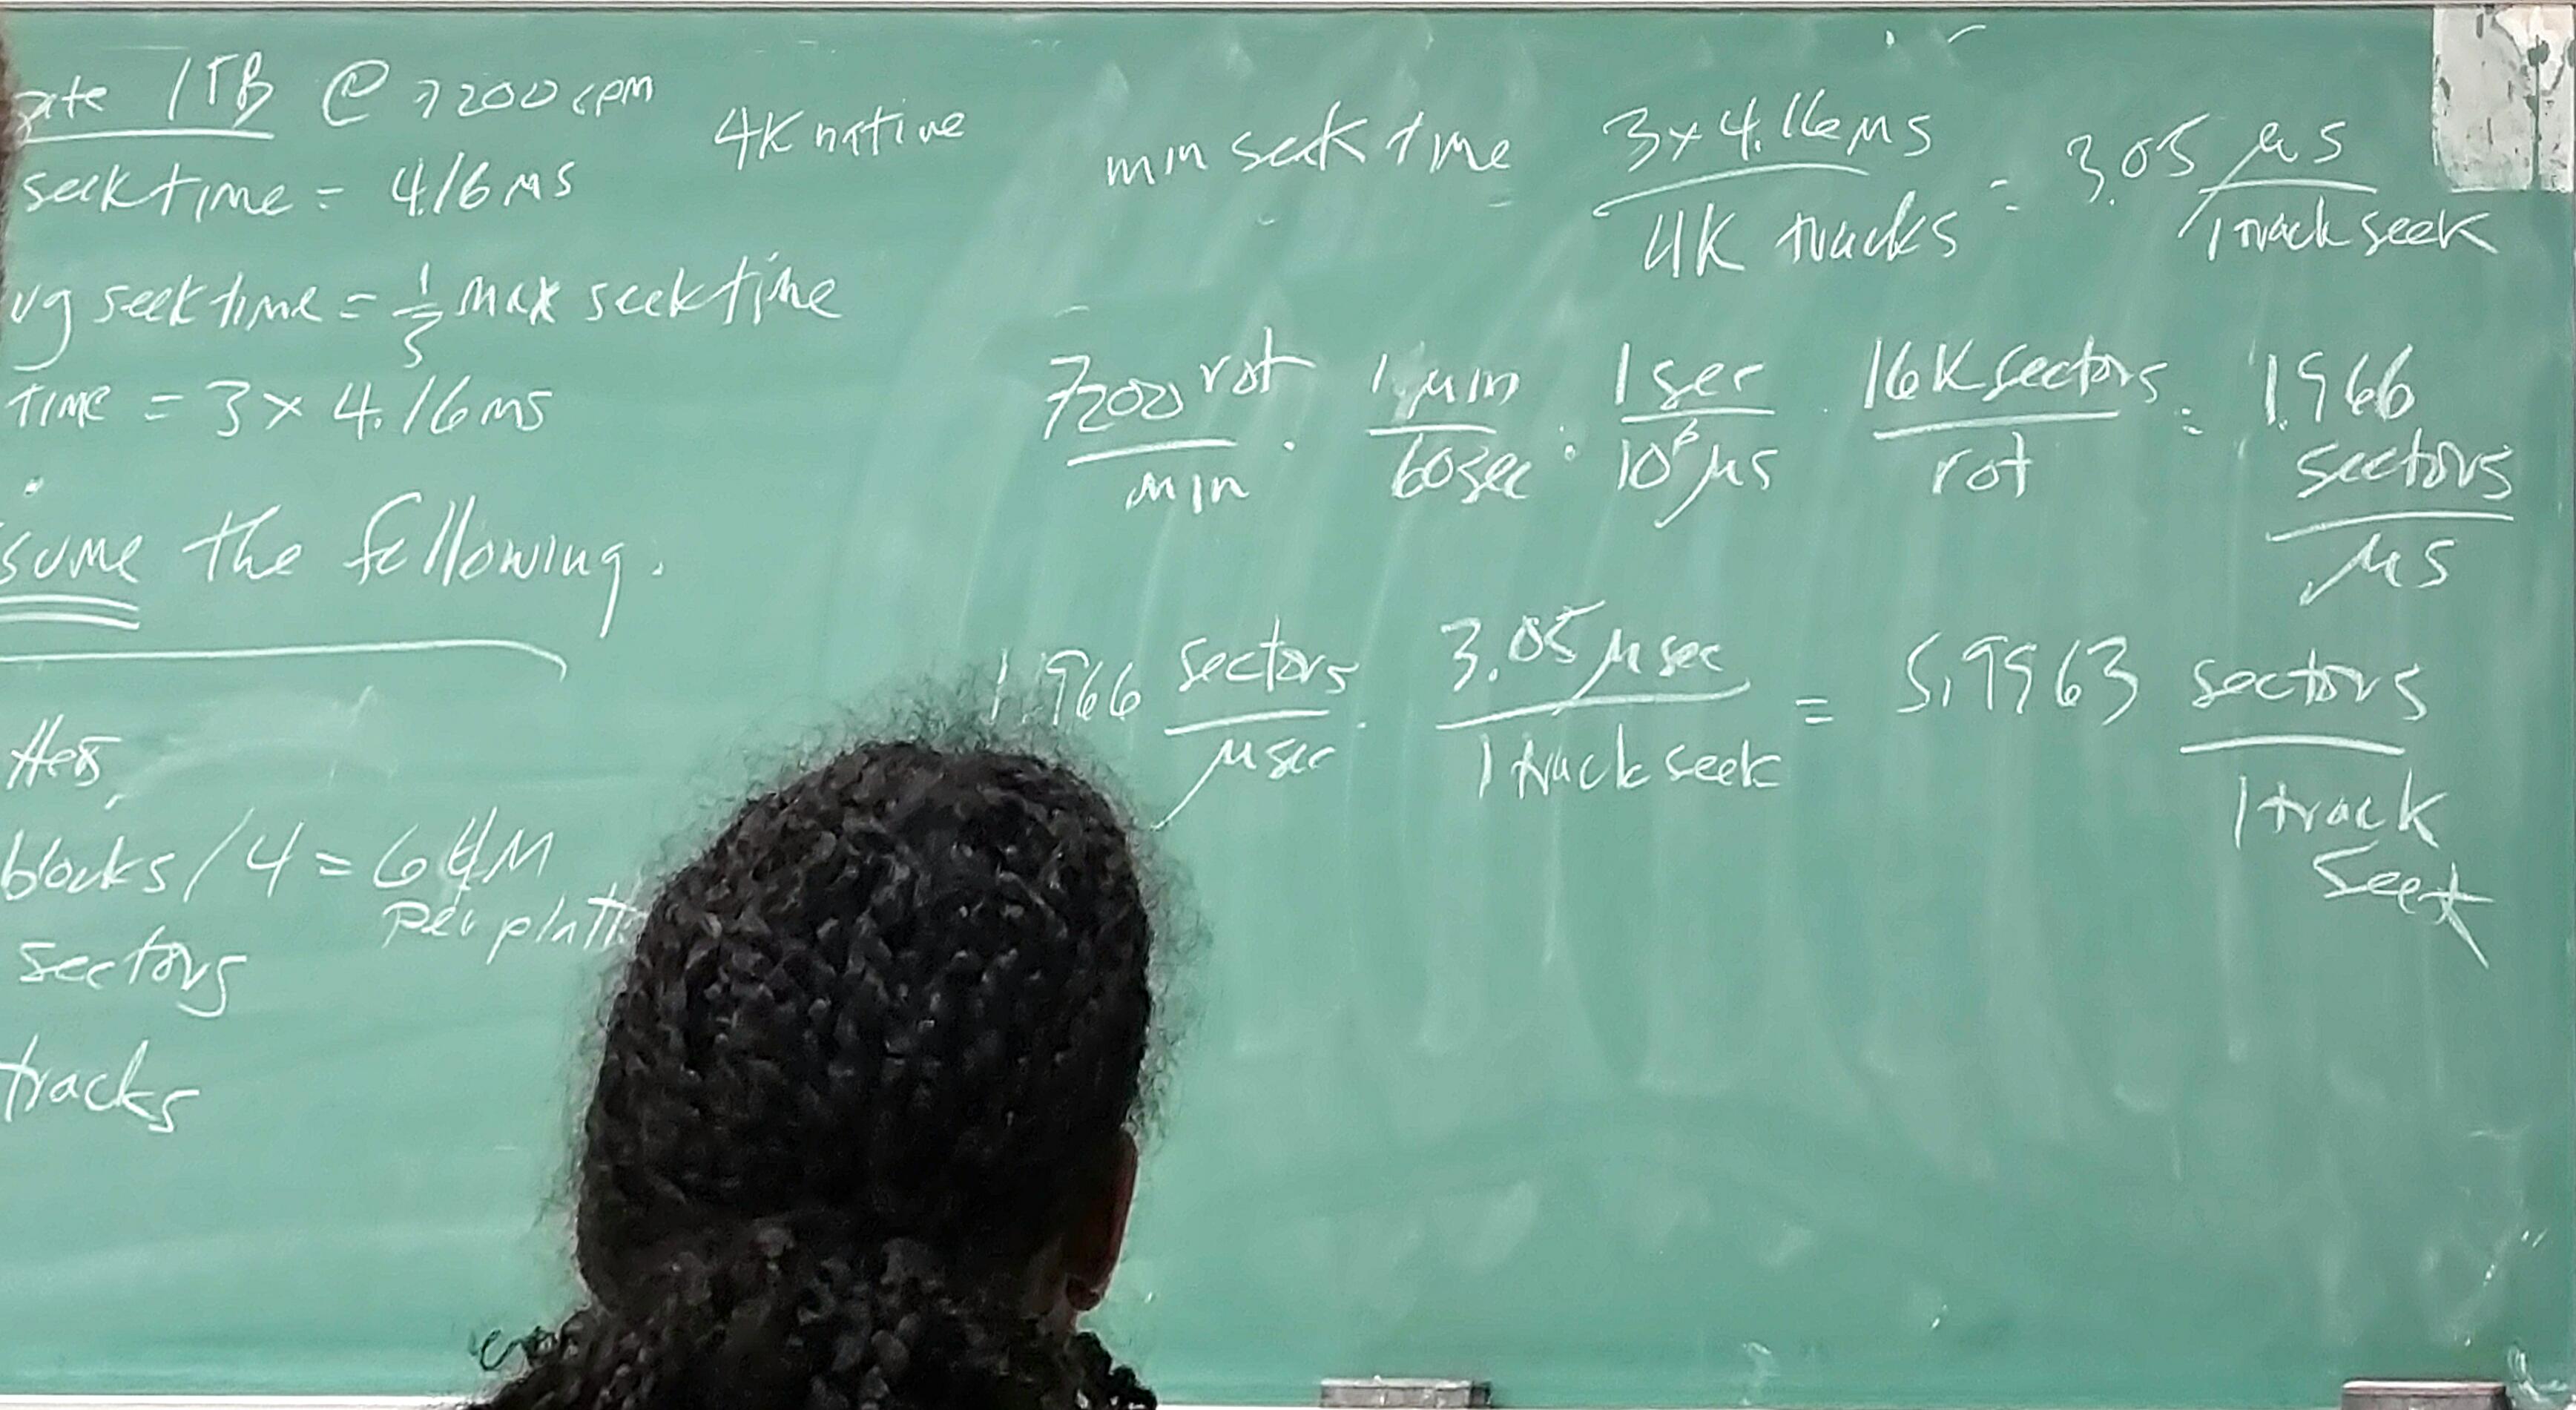 gate 1TB @ 7200 rpm
4K native
seek time = 4.16 ms
vg seek time = 1/3 max seek time
time = 3 x 4.16 ms
sume the following.
blocks / 4 = 64M
per platt
sectors
tracks
min seek time = 3 x 4.16 ms / 4K tracks = 3.05 µs / 1 track seek
7200 rot / min · 1 min / 60 sec · 1 sec / 10⁶ µs · 16K sectors / rot = 1.966 sectors / µs
1.966 sectors / µsec · 3.05 µsec / 1 track seek = 5.9963 sectors / 1 track seek